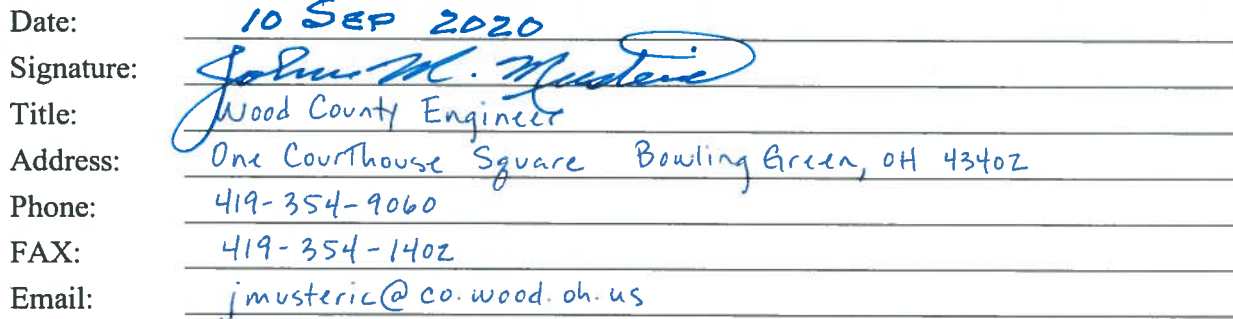 Date: 10 SEP 2020
Signature: John M. Musteric
Title: Wood County Engineer
Address: One Courthouse Square Bowling Green, OH 43402
Phone: 419-354-9060
FAX: 419-354-1402
Email: jmusteric@co.wood.oh.us